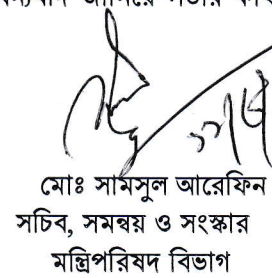 মোঃ সামসুল আরেফিন
সচিব, সমন্বয় ও সংস্কার
মন্ত্রিপরিষদ বিভাগ